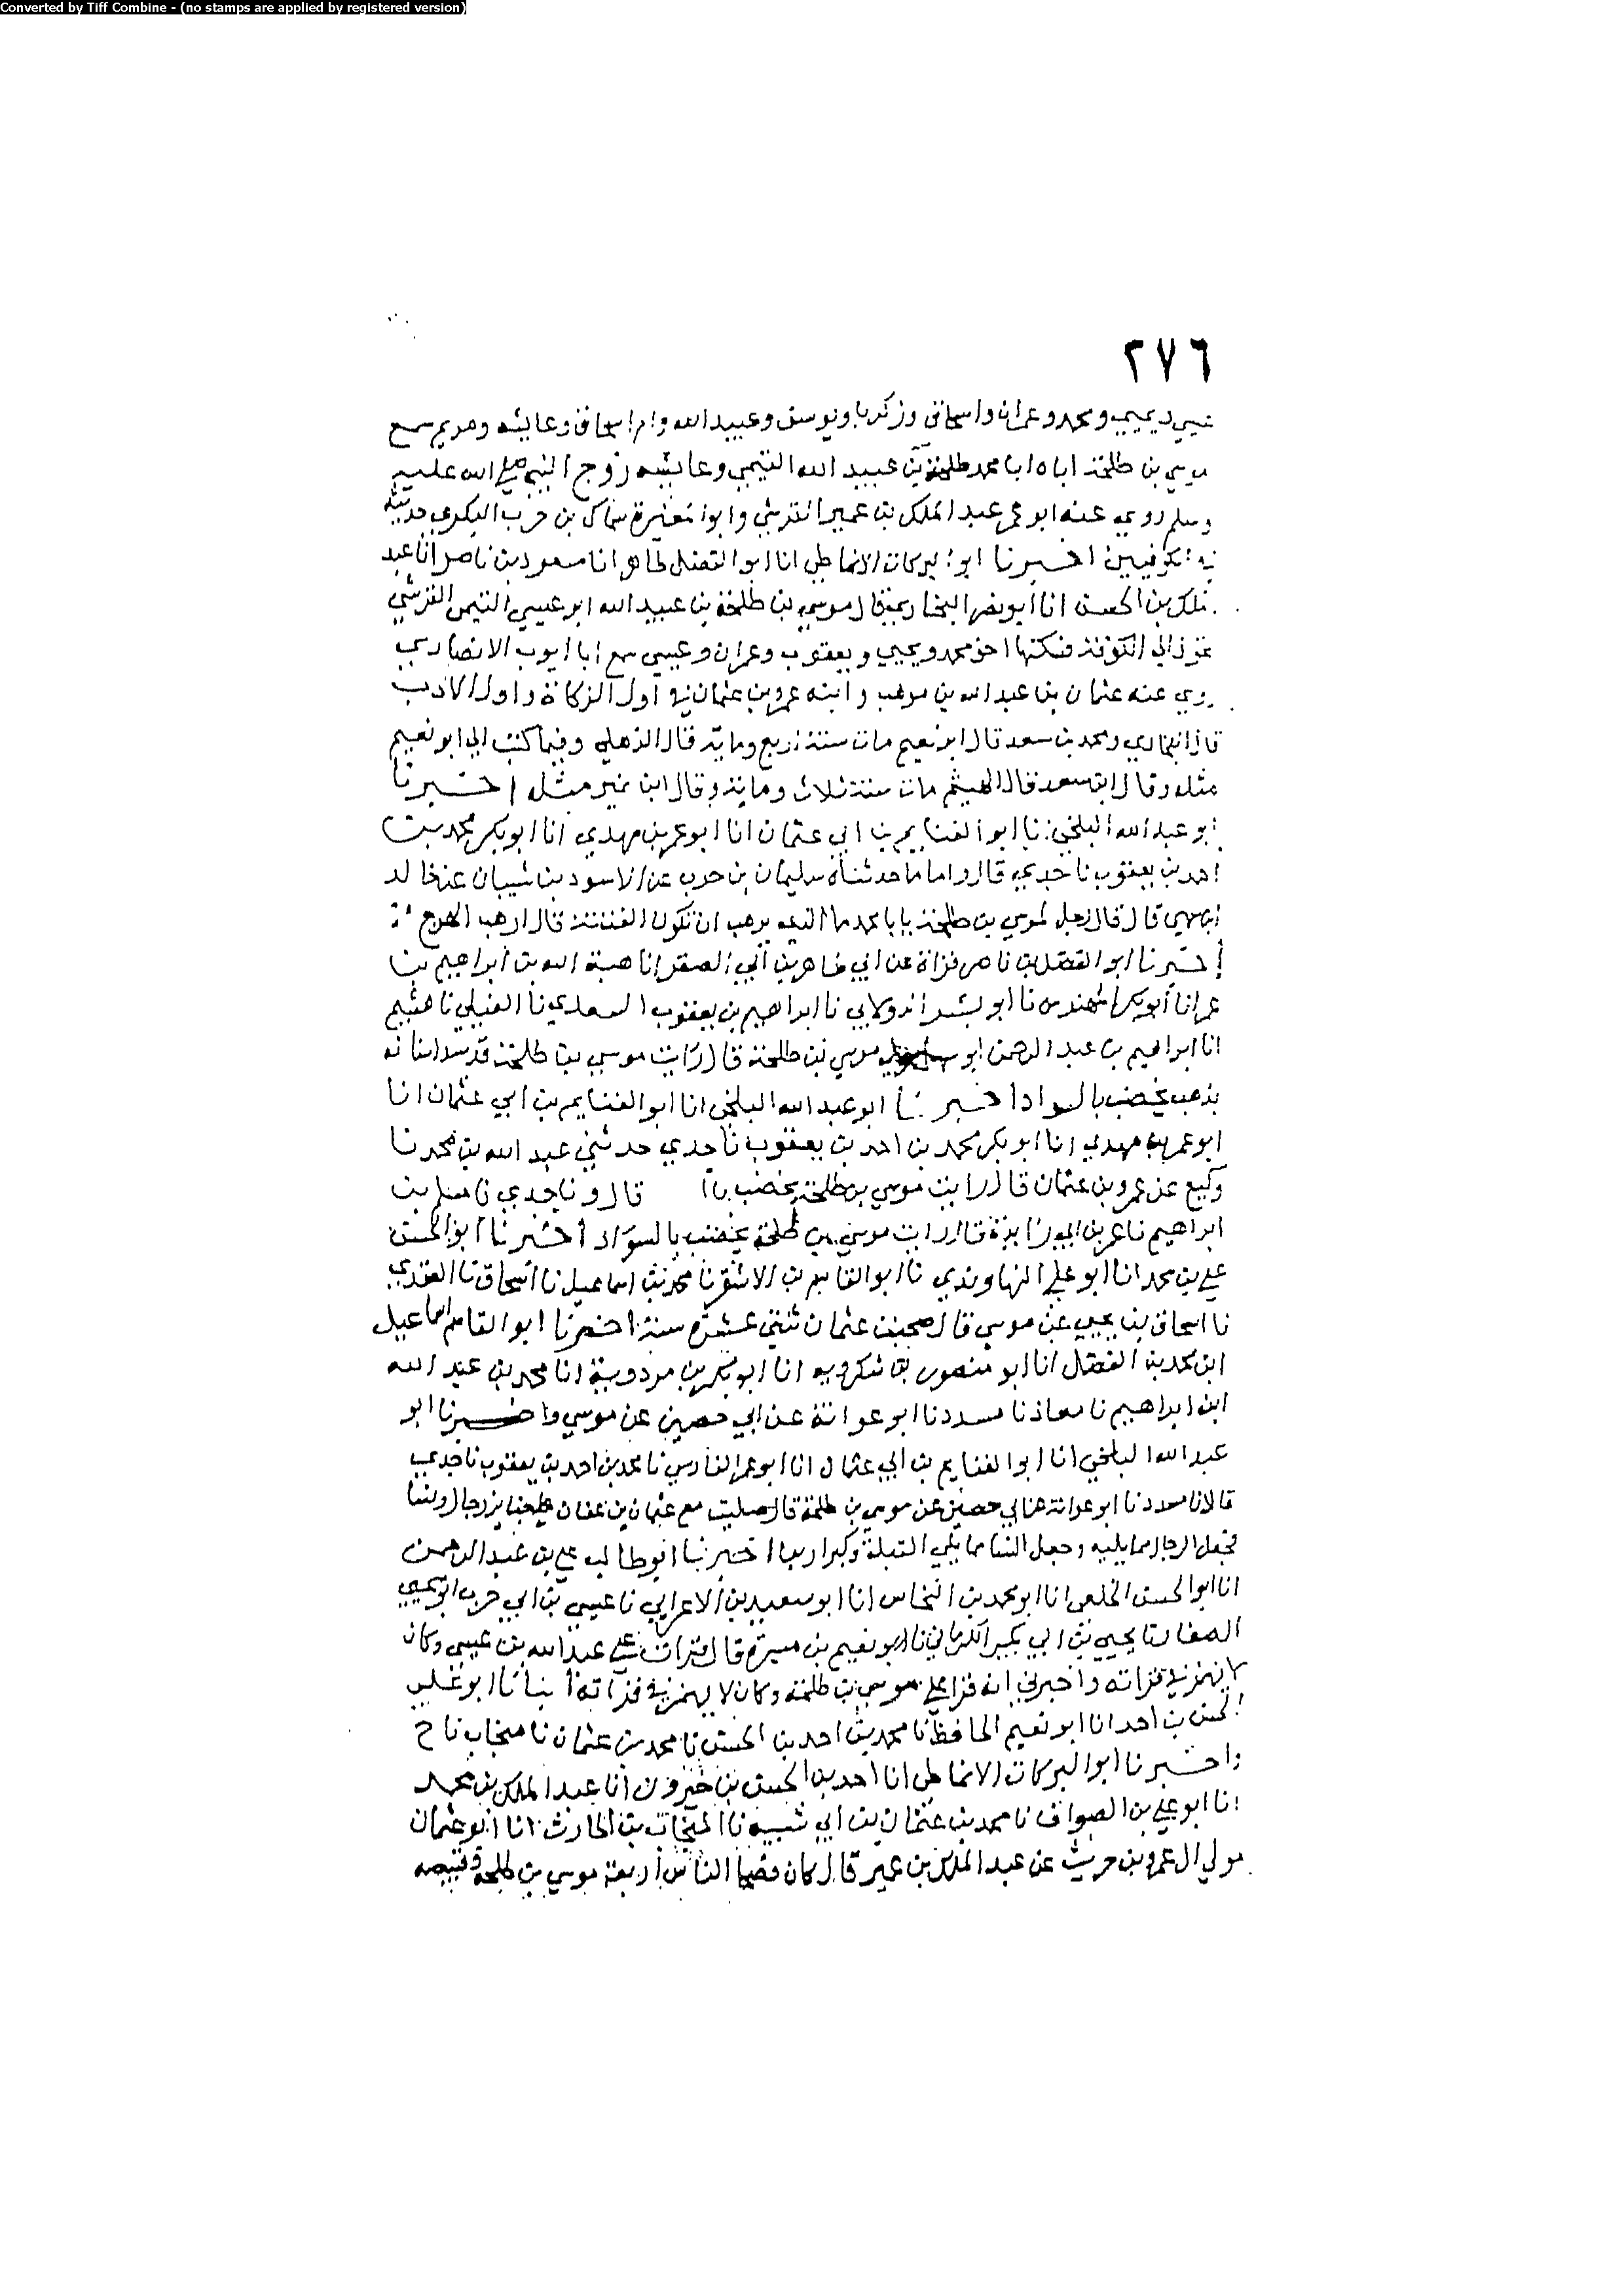 Converted by Tiff Combine - (no stamps are applied by registered version)
٢٧٦
عيسي ويحيي ومحمد وعمران واسحاق وزكريا ويوسف وعبيد الله وام اسحاق وعايشه ومريم سمع
موسي بن طلحة اباه ابا محمد طلحة بن عبيد الله التيمي وعايشه زوج النبي صلي الله عليه
وسلم روي عنه ابو عمر عبد الملك بن عمير القرشي وابو المغيرة سماك بن حرب البكري حديثه
في الكوفيين اخبرنا ابو البركات الانماطي انا ابو الفضل طاهر انا مسعود بن ناصر انا عبد
الملك بن الحسن انا ابو نصر البخاري قال موسي بن طلحة بن عبيد الله ابو عيسي التيمي القرشي
الي الكوفة فسكنها اخو محمد ويحيي ويعقوب وعمران وعيسي سمع ابا ايوب الانصاري
روي عنه عثمان بن عبد الله بن موهب وابنه عمرو بن عثمان في اول الزكاة واول الادب
قال البخاري ومحمد بن سعد قال ابو نعيم مات سنة اربع وماية قال الذهلي وفيما كتب الي ابو نعيم
مثله وقال ابن سعد قال الهيثم مات سنة ثلاث وماية وقال ابن نمير مثله اخبرنا
ابو عبد الله البلخي انا ابو الغنايم بن ابي عثمان انا ابو عمر بن مهدي انا ابو بكر محمد بن
احمد بن يعقوب نا جدي قال واما ما حدثناه سليمان بن حرب عن الاسود بن شيبان عن خالد
ابن سمير قال قال رجل لموسي بن طلحة يا ابا محمد ما الذي يرهب ان تكون الفتنة قال ارهب الهرج
اخبرنا ابو الفضل بن ناصر قراة عن ابي طاهر بن ابي الصقر انا هبة الله بن ابراهيم بن
عمر انا ابو بكر المهندس نا ابو بشر الدولابي نا ابراهيم بن يعقوب السعدي نا هشيم
انا ابراهيم بن عبد الرحمن موسي بن طلحة قال رايت موسي بن طلحة قد شد اسنانه
بذهب يخضب بالسواد اخبرنا ابو عبد الله البلخي انا ابو الغنايم بن ابي عثمان انا
ابو عمر بن مهدي انا ابو بكر محمد بن احمد بن يعقوب نا جدي حدثني عبد الله بن محمد نا
وكيع عن عمرو بن عثمان قال رايت موسي بن طلحة يخضب قال ونا جدي نا مسلم بن
ابراهيم نا عمر بن ابي زايدة قال رايت موسي بن طلحة يخضب بالسواد اخبرنا ابو الحسن
علي بن محمد انا ابو علي النهاوندي نا ابو القاسم بن الاشقر نا محمد بن اسماعيل نا اسحاق نا
نا اسحاق بن يحيي عن موسي قال صحبت عثمان ثنتي عشرة سنة اخبرنا ابو القاسم اسماعيل
ابن محمد بن الفضل انا ابو منصور بن شكرويه انا ابو بكر بن مردويه انا محمد بن عبد الله
ابن ابراهيم نا معاذ نا مسدد نا ابو عوانة عن ابي حصين عن موسي واخبرنا ابو
عبد الله البلخي انا ابو الغنايم بن ابي عثمان انا ابو عمر الفارسي نا محمد بن احمد بن يعقوب نا جدي
قالا نا مسدد نا ابو عوانة عن ابي حصين عن موسي بن طلحة قال صليت مع عثمان بن عفان علي جنايز رجال ونسا
فجعل الرجال مما يليه وجعل النسا مما يلي القبلة وكبر اربعا اخبرنا ابو طالب علي بن عبد الرحمن
انا ابو الحسن الخلعي انا ابو محمد بن النحاس انا ابو سعيد بن الاعرابي نا عيسي بن ابي حرب ابو يحيي
الصفار نا يحيي بن ابي بكير الكرماني نا ابو نعيم بن ميسرة قال قرات علي عبد الله بن عيسي وكان
لا يهمز في قراته واخبرني انه قرا علي موسي بن طلحة وكان لا يهمز في قراته انبانا ابو علي
الحسن بن احمد انا ابو نعيم الحافظ نا محمد بن احمد بن الحسن نا محمد بن عثمان نا منجاب نا ح
واخبرنا ابو البركات الانماطي انا احمد بن الحسن بن خيرون انا عبد الملك بن محمد
انا ابو علي بن الصواف نا محمد بن عثمان بن ابي شيبه نا المنجاب بن الحارث انا ابو عثمان
مولي ال عمرو بن حريث عن عبد الملك بن عمير قال كان فصحا الناس اربعة موسي بن طلحة وقبيصه